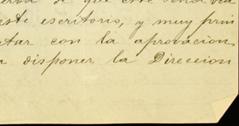 de que este
este escritorio, y muy prin
ctar con la aprovacion
a disponer la Direccion